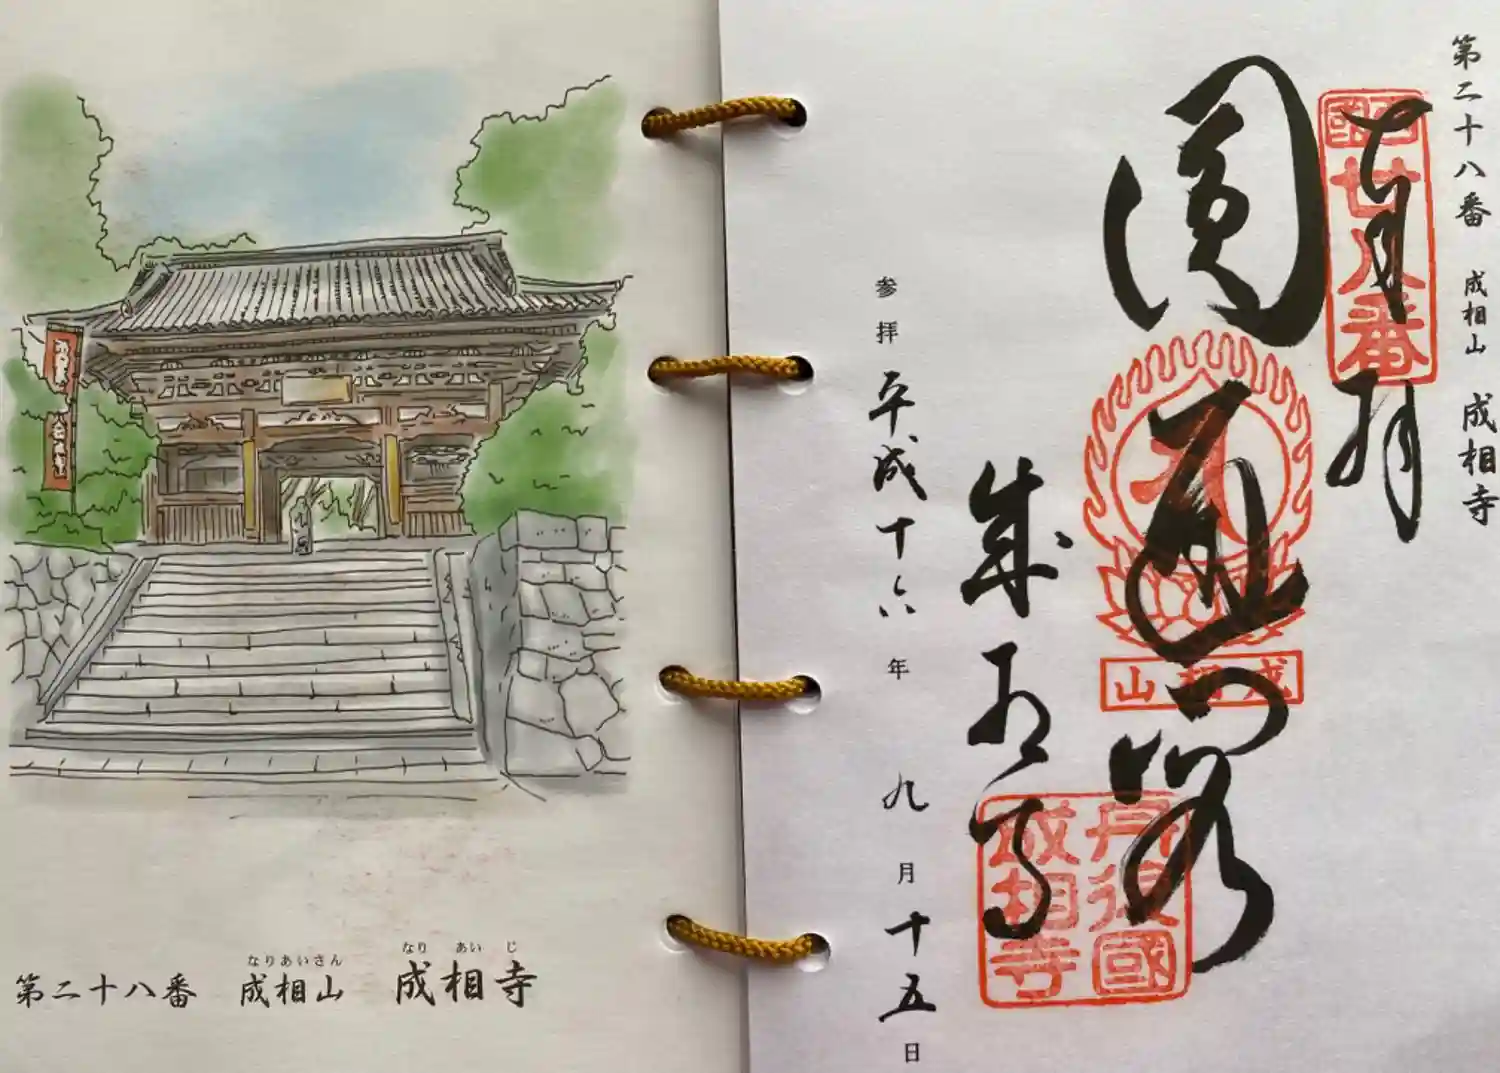 なりあいさん なり あい じ
第二十八番 成相山 成相寺
第二十八番 成相山 成相寺
奉拝
西國
廿八番
圓通閣
成相山
成相寺
丹後國
成相寺
参拝 平成十六年 九月十五日